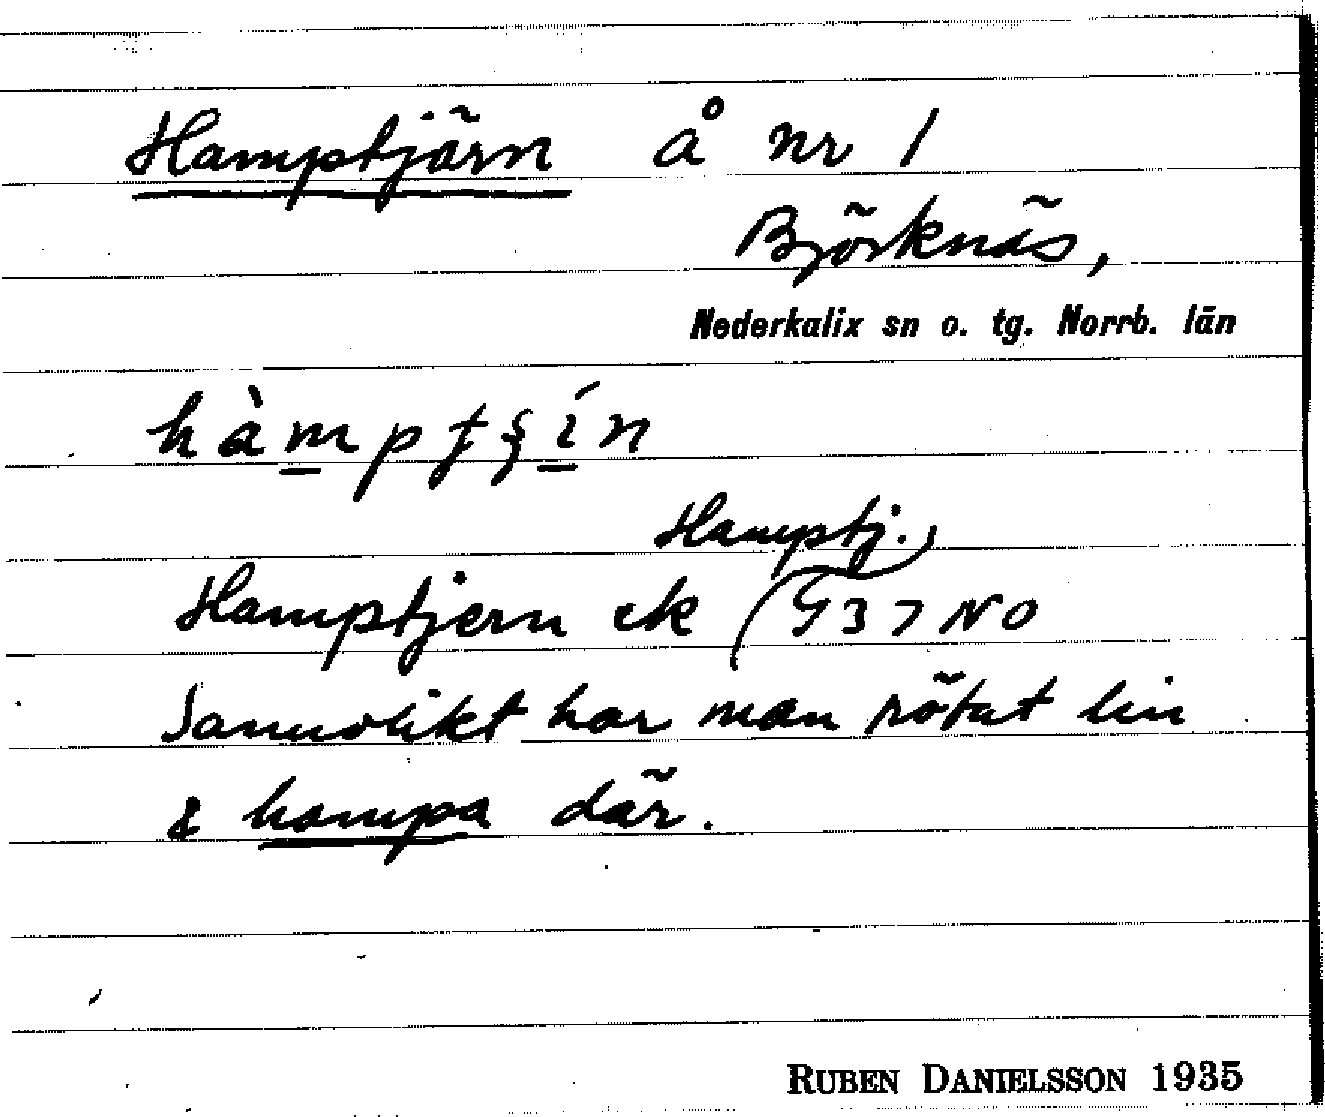 Hamptjärn å nr 1
Björknäs,
Nederkalix sn o. tg. Norrb. län
Hamptj.
Hamptjern ek (G37NO
Sannolikt har man rötat lin
& hampa där.
RUBEN DANIELSSON 1935